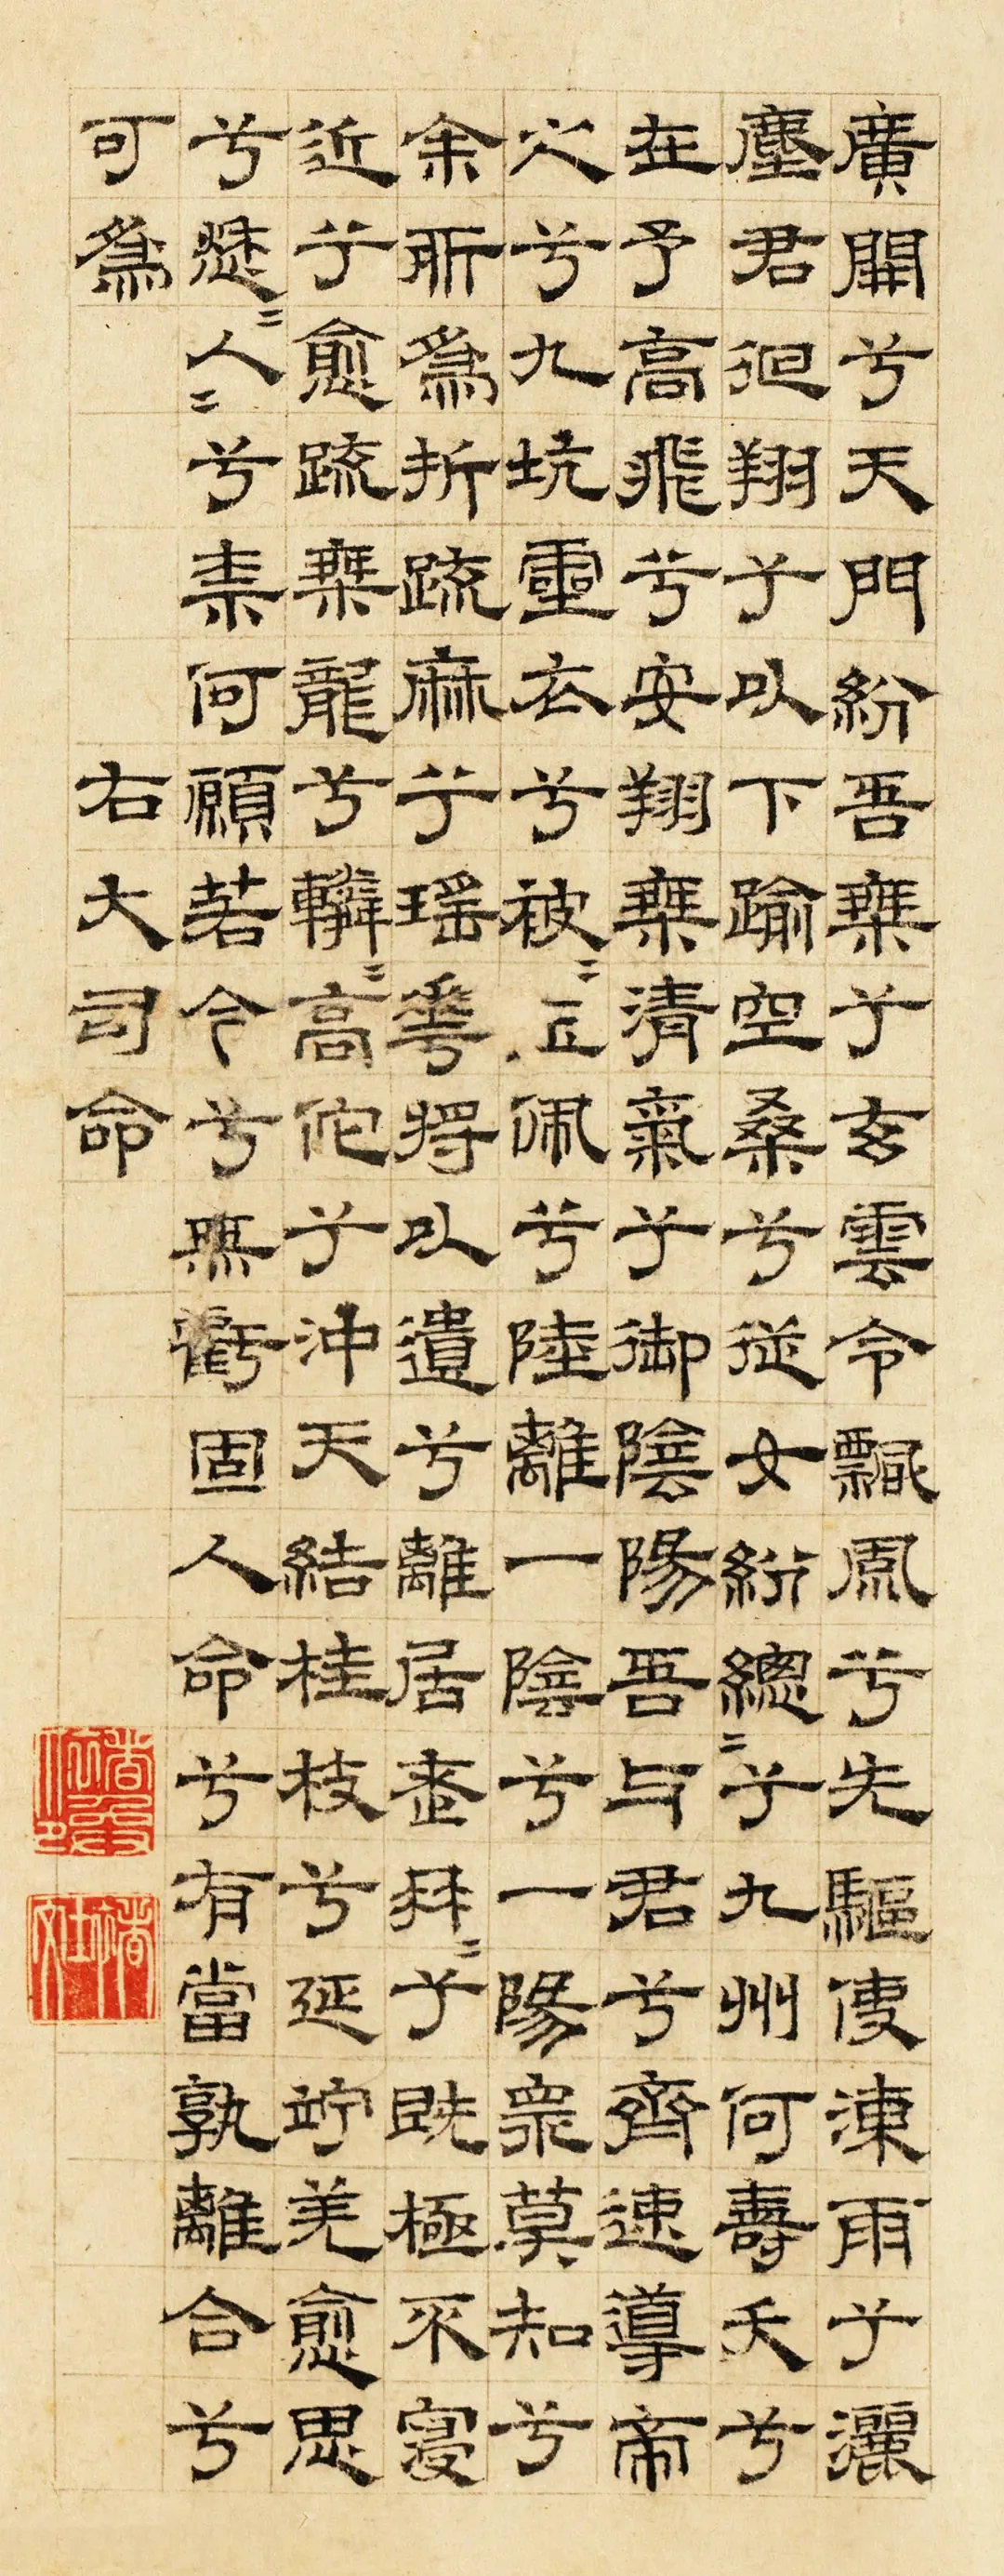 廣開兮天門紛吾椉乎玄雲令飄風兮先驅使涷雨乎灑
塵君徊翔乎以下踰空桑兮從女紛總〻乎九州何壽夭兮
在予高飛兮安翔椉清氣乎御陰陽吾与君兮齊速導帝
之兮九坑靈衣兮被〻玉佩兮陸離一陰兮一陽眾莫知兮
余所爲折疏麻乎瑤華將以遺兮離居老冉〻乎既極不寖
近乎愈疏椉龍兮轔〻高佗乎沖天結桂枝兮延竚羌愈思
兮愁〻人〻兮柰何願若今兮無虧固人命兮有當孰離合兮
可爲
右大司命